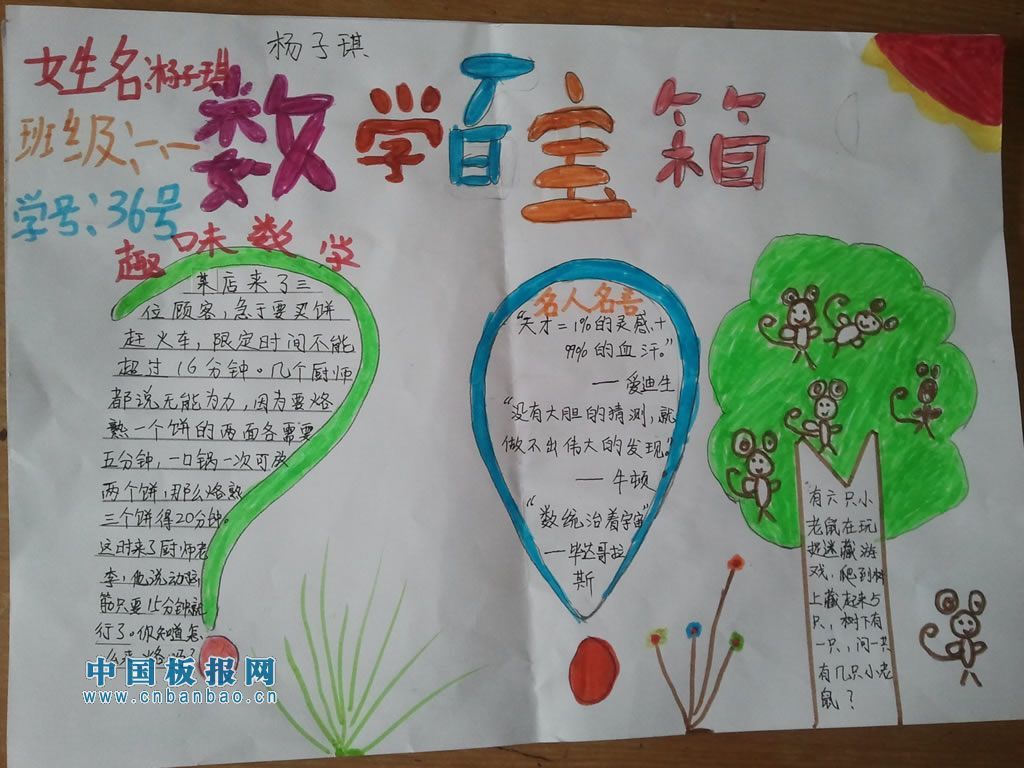 杨子琪
女生名:杨子琪
数学百宝箱
班级:六、一
学号:36号
趣味数学
某店来了三
位顾客,急于要买饼
赶火车,限定时间不能
超过16分钟。几个厨师
都说无能为力,因为要烙
熟一个饼的两面各需要
五分钟,一口锅一次可放
两个饼,那么烙熟
三个饼得20分钟。
这时来了厨师老
李,他说动脑
筋只要15分钟就
行了。你知道怎
名人名言
“天才=1%的灵感+
99%的血汗。”
——爱迪生
“没有大胆的猜测,就
做不出伟大的发现。”
——牛顿
“数统治着宇宙”
——毕达哥拉
斯
有六只小
老鼠在玩
捉迷藏游
戏,爬到树
上藏起来5
只,树下有
一只,问一共
有几只小老
鼠?
中国板报网
www.cnbanbao.cn